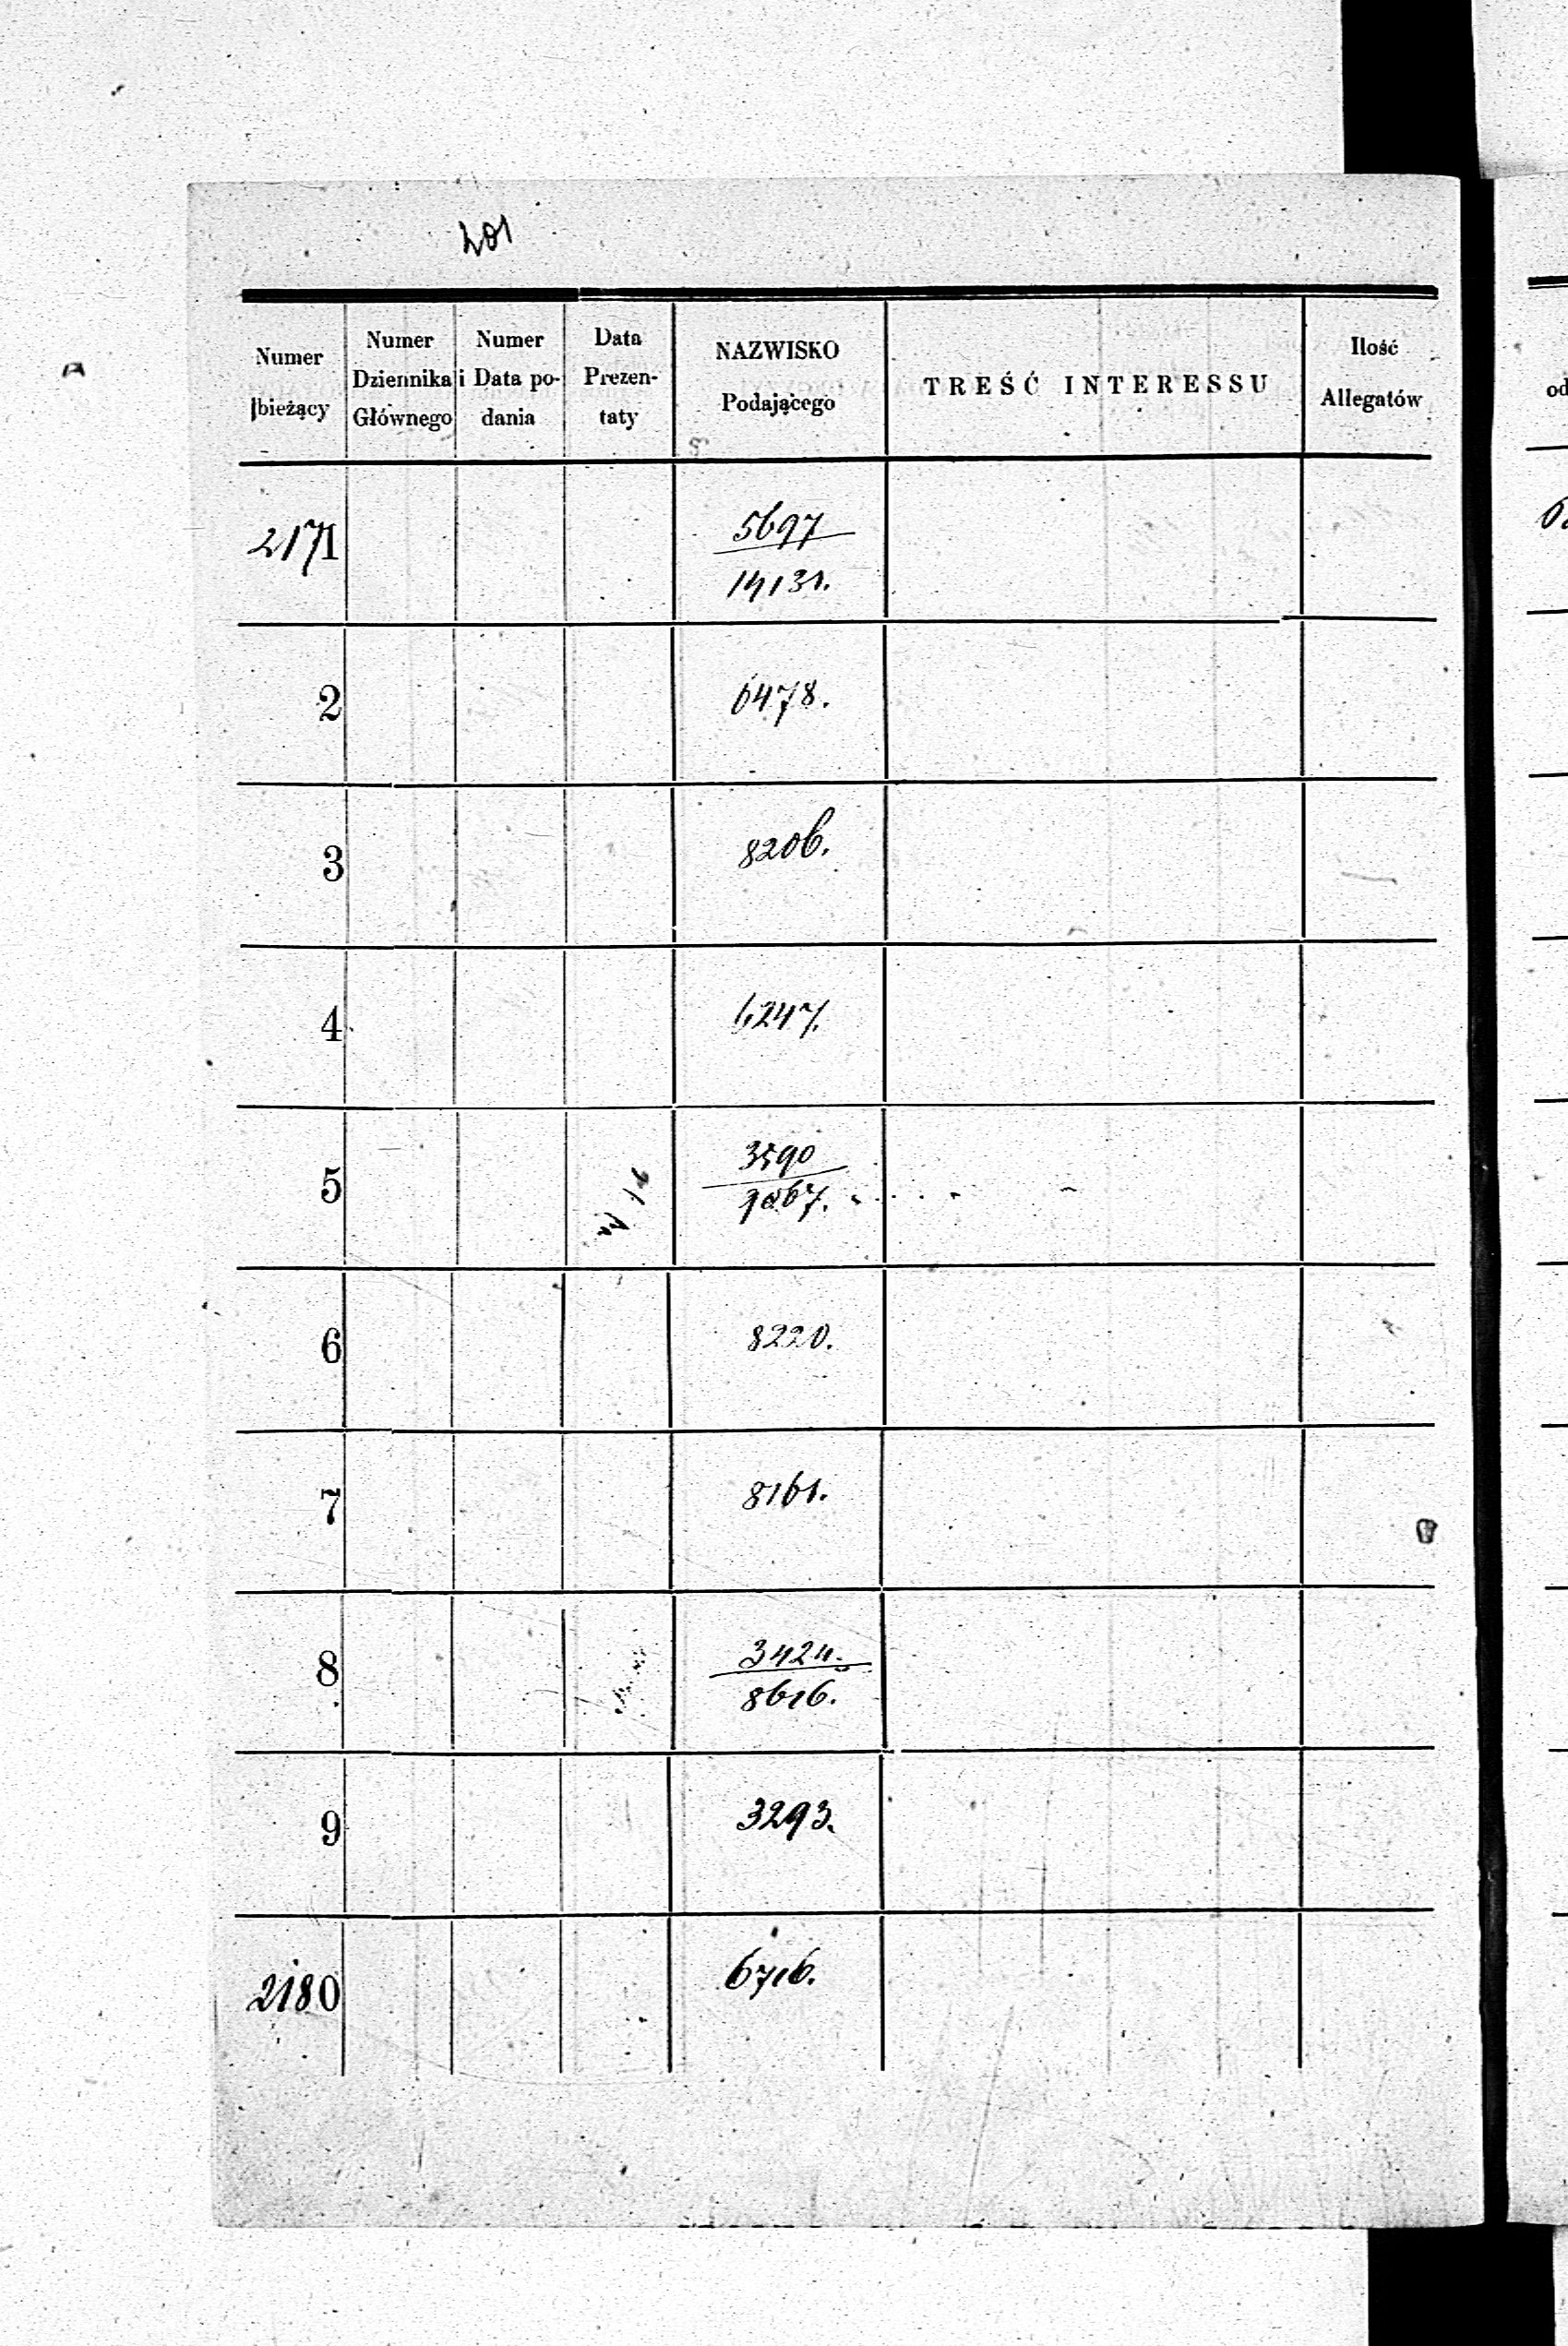 201
Numer bieżący
Numer Dziennika Głównego
Numer i Data podania
Data Prezentaty
NAZWISKO Podającego
TREŚĆ INTERESSU
Ilość Allegatów
2171 5697
14131.
2 6478.
3 8206.
4 6247.
5 3590
9867.
6 8220.
7 8161.
8 3424.
8616.
9 3293.
2180 6716.